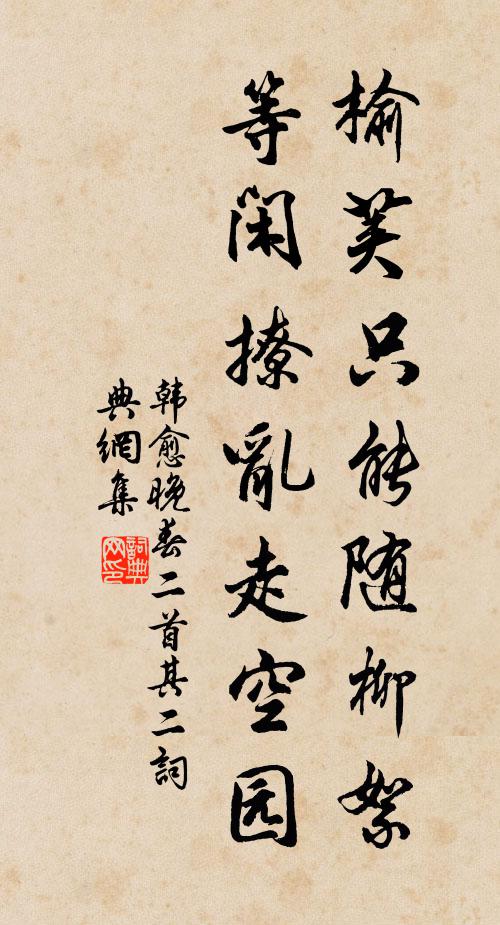 榆荚只能随柳絮
等闲撩亂走空园
韩愈晚春二首其二詞
典網集
詞典網印